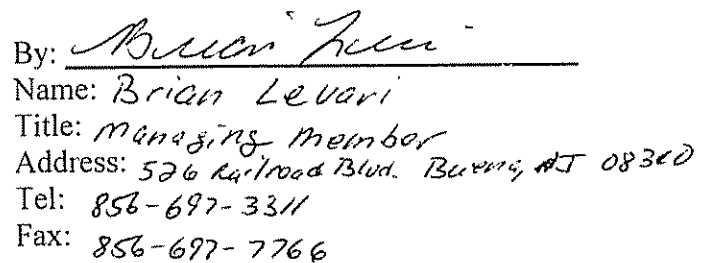 By: Brian Levari
Name: Brian Levari
Title: Managing Member
Address: 526 Railroad Blvd. Buena, NJ 08310
Tel: 856-697-3311
Fax: 856-697-7766